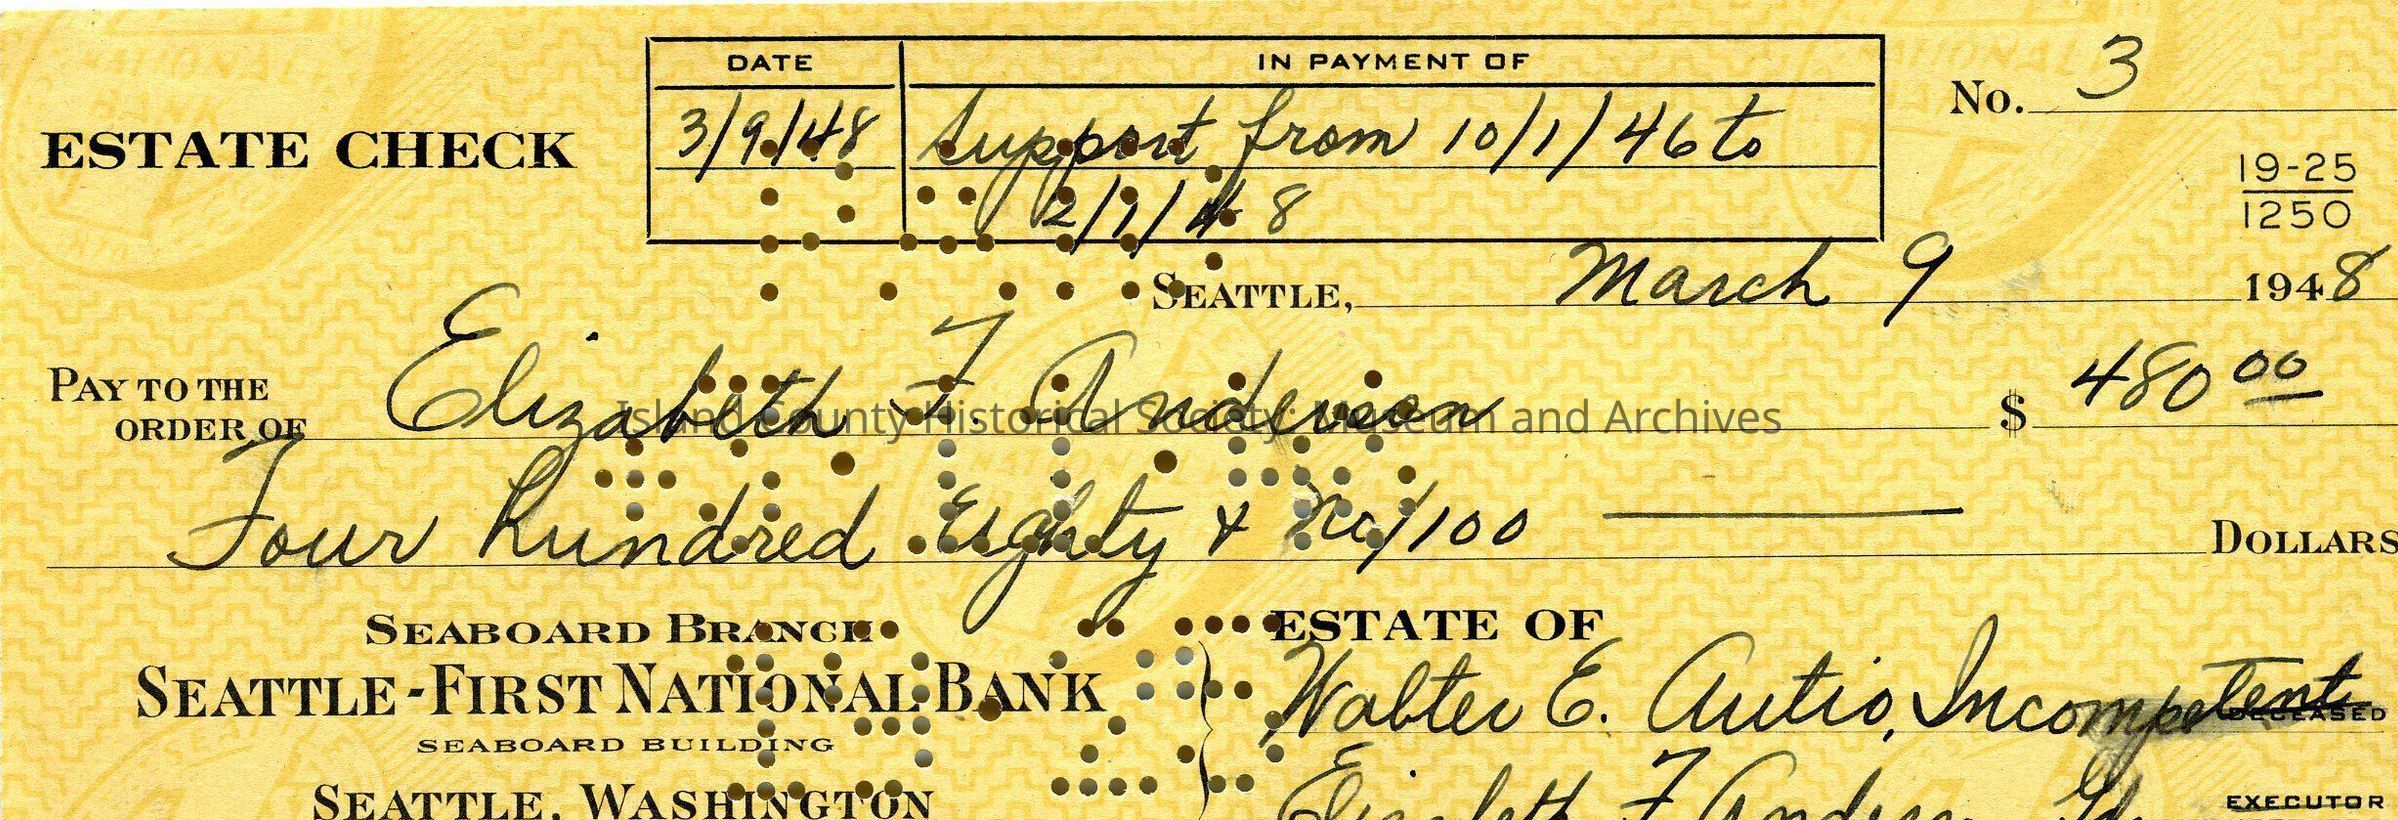 DATE IN PAYMENT OF
No. 3
ESTATE CHECK
3/9/48 Support from 10/1/46 to
2/1/48
19-25
1250
SEATTLE, March 9 1948
PAY TO THE
ORDER OF Elizabeth F. Anderson $ 480 00
Island County Historical Society: Museum and Archives
Four hundred Eighty & no/100 DOLLARS
SEABOARD BRANCH
SEATTLE-FIRST NATIONAL BANK
SEABOARD BUILDING
SEATTLE, WASHINGTON
ESTATE OF
Walter E. Autio, Incompetent
DECEASED
Elizabeth F Anderson
EXECUTOR